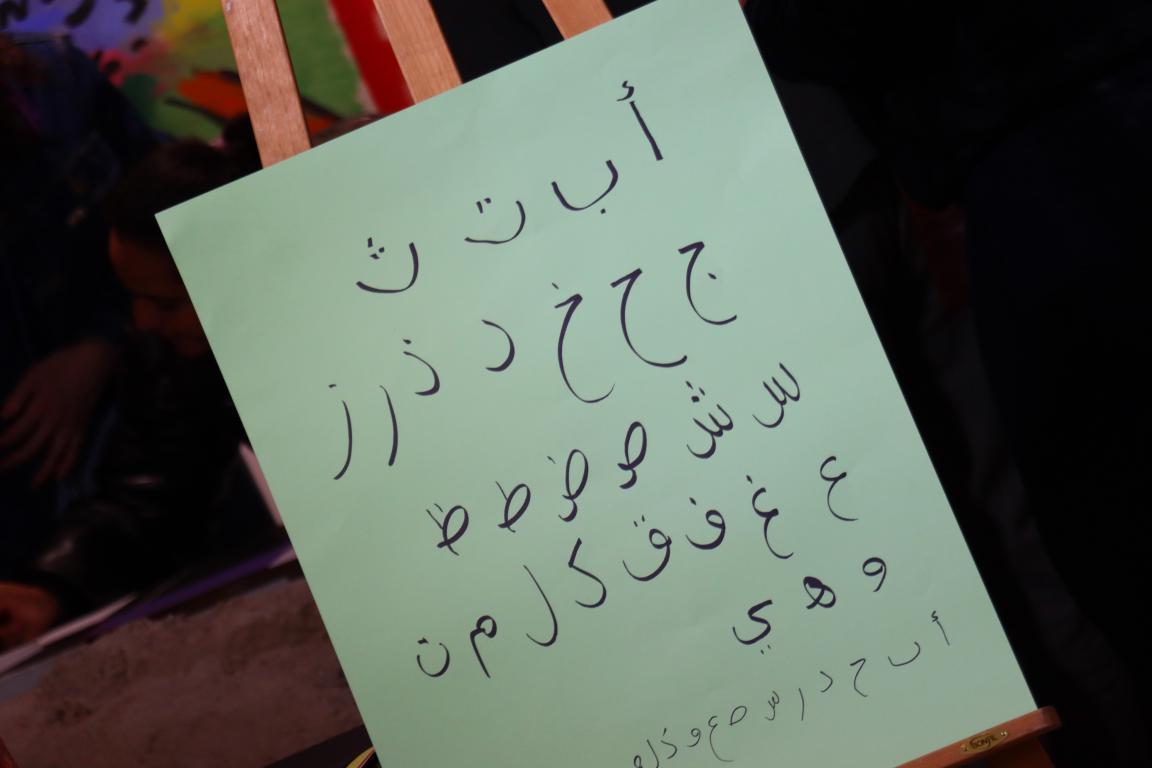 أ ب ت ث
ج ح خ د ذ ر ز
س ش ص ض ط ظ
ع غ ف ق ك ل م ن
و ه ي
أ ب ح د ر س ص ع و